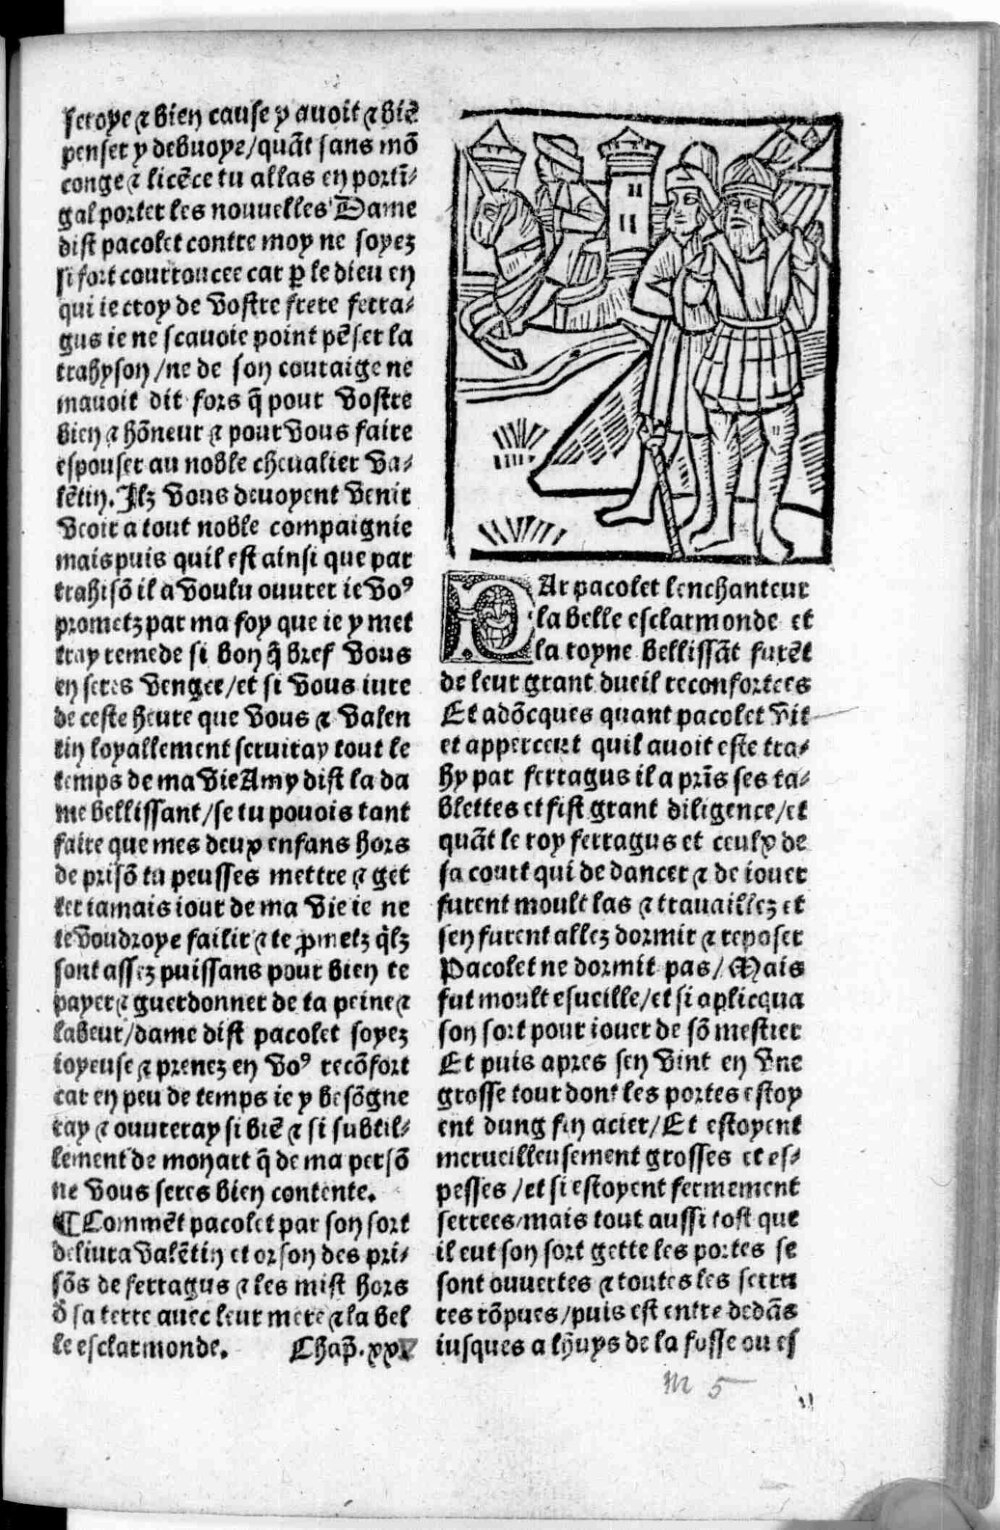 seroye ⁊ bien cause y auoit ⁊ biẽ
penser y debuoye/quãt sans mõ
conge ⁊ licẽce tu allas en portĩ-
gal porter les nouuelles Dame
dist pacolet contre moy ne soyez
si fort courroucee car ꝑ le dieu en
qui ie croy de vostre frere ferra-
gus ie ne scauoie point pẽser la
trahyson/ne de son couraige ne
mauoit dit fors q̃ pour vostre
bien ⁊ hõneur ⁊ pour vous faire
espouser au noble cheualier va-
lẽtin. Ilz vous deuoyent venir
veoir a tout noble compaignie
mais puis quil est ainsi que par
trahisõ il a voulu ouurer ie voꝰ
prometz par ma foy que ie y met
tray remede si bon q̃ bref vous
en seres vengee/et si vous iure
de ceste heure que vous ⁊ valen
tin loyallement seruiray tout le
temps de ma vie Amy dist la da
me bellissant/se tu pouois tant
faire que mes deux enfans hors
de prisõ tu peusses mettre ⁊ get
ter iamais iour de ma vie ie ne
te voudroye faillir ⁊ te ꝓmetz q̃lz
sont assez puissans pour bien te
payer ⁊ guerdonner de ta peine ⁊
labeur/dame dist pacolet soyez
ioyeuse ⁊ prenez en voꝰ recõfort
car en peu de temps ie y besõgne
ray ⁊ ouureray si biẽ ⁊ si subtil-
lement de mon art q̃ de ma persõ
ne vous seres bien contente.
¶ Commẽt pacolet par son sort
deliura valẽtin et orson des pri-
sõs de ferragus ⁊ les mist hors
d̃ sa terre auec leur mere ⁊ la bel
le esclarmonde. Chap̃. xxv
PAr pacolet lenchanteur
la belle esclarmonde et
la royne bellissãt furẽt
de leur grant dueil reconfortees
Et adõcques quant pacolet vit
et apperceut quil auoit este tra-
hy par ferragus il a prĩs ses ta-
blettes et fist grant diligence/et
quãt le roy ferragus et ceulx de
sa court qui de dancer ⁊ de iouer
furent moult las ⁊ trauaillez et
sen furent allez dormir ⁊ reposer
Pacolet ne dormit pas/Mais
fut moult esueille/et si aplicqua
son sort pour iouer de sõ mestier
Et puis apres sen vint en vne
grosse tour dont les portes estoy
ent dung fin acier/Et estoyent
merueilleusement grosses et es-
pesses/et si estoyent fermement
serrees/mais tout aussi tost que
il eut son sort gette les portes se
sont ouuertes ⁊ toutes les serru
res rõpues/puis est entre dedãs
iusques a lhuys de la fosse ou es
m 5